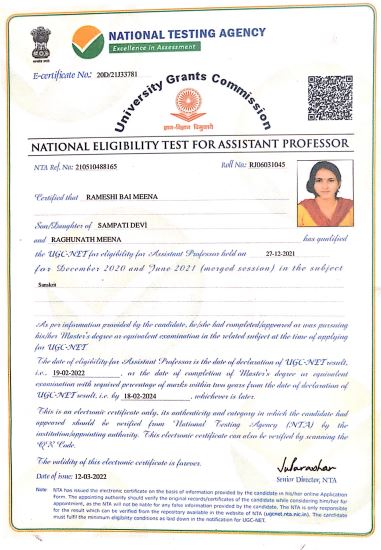 NATIONAL TESTING AGENCY
Excellence in Assessment
E-certificate No.: 20D/21J33781
University Grants Commission
ज्ञान-विज्ञान विमुक्तये
NATIONAL ELIGIBILITY TEST FOR ASSISTANT PROFESSOR
NTA Ref. No: 210510488165 Roll No: RJ06031045
Certified that RAMESHI BAI MEENA
Son/Daughter of SAMPATI DEVI
and RAGHUNATH MEENA has qualified
the UGC-NET for eligibility for Assistant Professor held on 27-12-2021
for December 2020 and June 2021 (merged session) in the subject
Sanskrit
As per information provided by the candidate, he/she had completed/appeared or was pursuing
his/her Master's degree or equivalent examination in the related subject at the time of applying
for UGC-NET
The date of eligibility for Assistant Professor is the date of declaration of UGC-NET result,
i.e., 19-02-2022 , or the date of completion of Master's degree or equivalent
examination with required percentage of marks within two years from the date of declaration of
UGC-NET result, i.e. by 18-02-2024 , whichever is later.
This is an electronic certificate only, its authenticity and category in which the candidate had
appeared should be verified from National Testing Agency (NTA) by the
institution/appointing authority. This electronic certificate can also be verified by scanning the
QR Code.
The validity of this electronic certificate is forever.
Date of issue: 12-03-2022
Senior Director, NTA
Note: NTA has issued the electronic certificate on the basis of information provided by the candidate in his/her online Application
Form. The appointing authority should verify the original records/certificates of the candidate while considering him/her for
appointment, as the NTA will not be liable for any false information provided by the candidate. The NTA is only responsible
for the result which can be verified from the repository available in the website of NTA (ugcnet.nta.nic.in). The candidate
must fulfil the minimum eligibility conditions as laid down in the notification for UGC-NET.